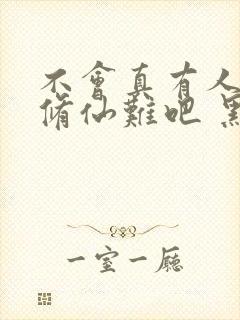 不會真有人
脩仙難吧
一室一廳